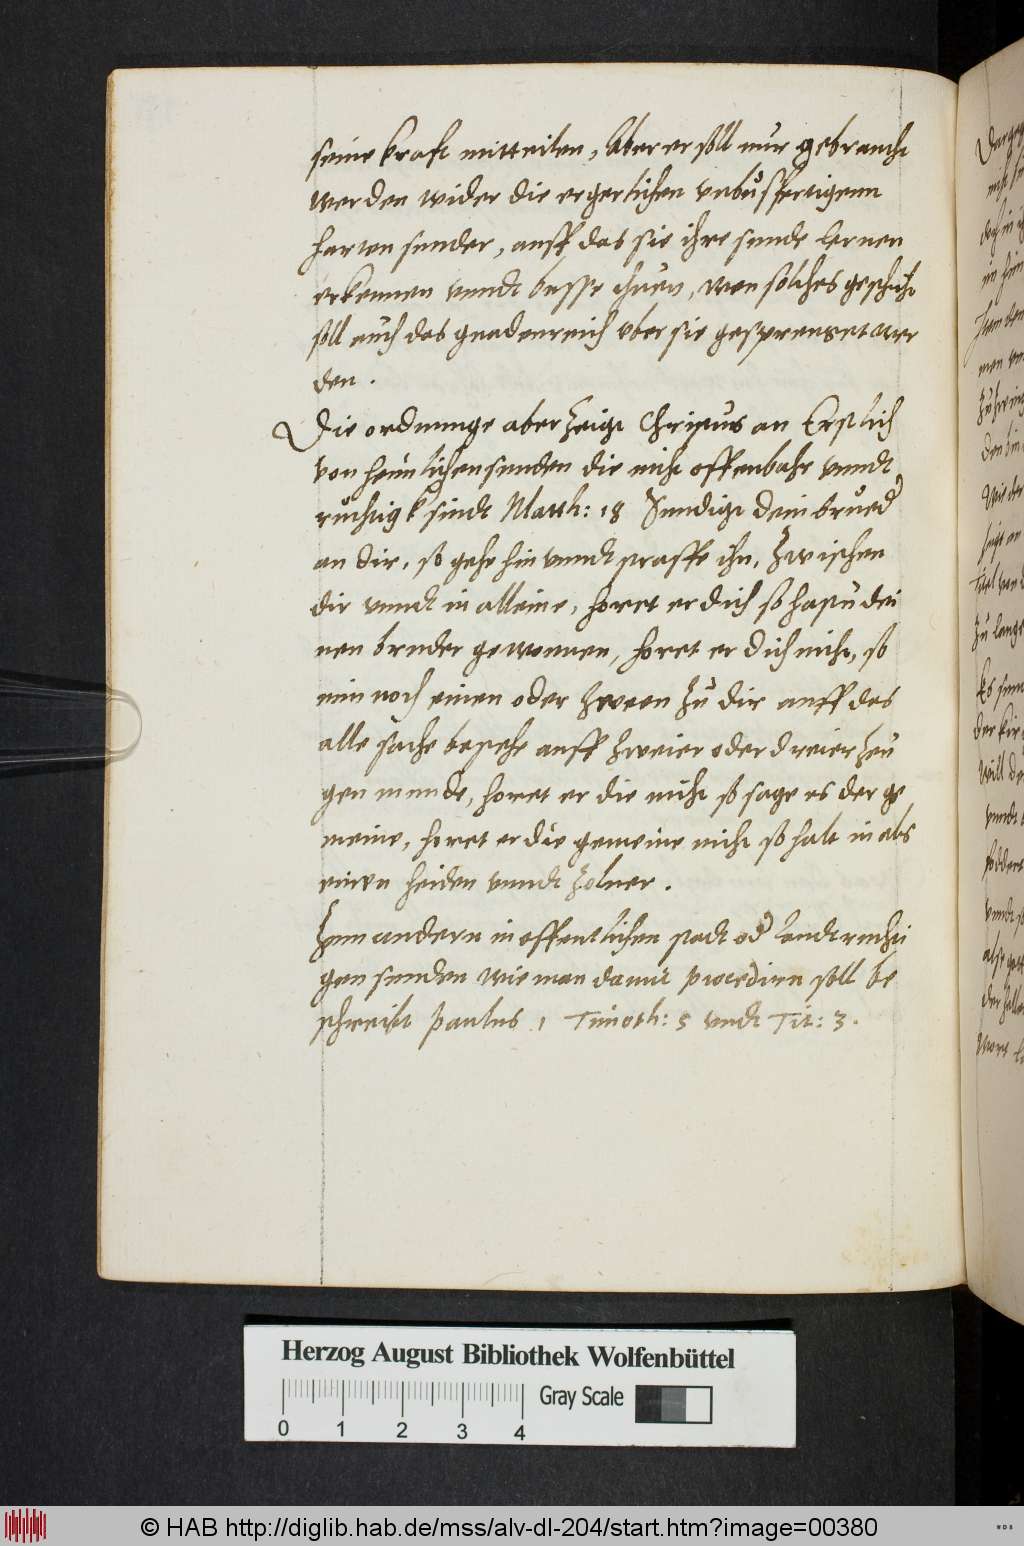 seine kraft mitteilen, Aber er soll nur gebraucht
werden wider die ergerlichen vnbusfertigenn
harten sunder, auff das sie ihre sunde lernen
erkennen vnndt busse thuen, wen solches geschicht
soll auch das gnadenreich vber sie gesprenget wer
den.
Die ordnunge aber zeigt Christus an Erstlich
von heimlichen sunden die nicht offenbahr vnndt
ruchtigk sindt Matth: 18 Sundigt dein brued
an dir, so gehe hin vnndt straffe ihn, zwischen
dir vnndt in alleine, horet er dich so hastu dei
nen bruder gewonnen, horet er dich nicht, so
nim noch einen oder zween zu dir auff das
alle sache bestehe auff zweier oder dreier zeu
gen munde, horet er die nicht so sage es der ge
meine, horet er die gemeine nicht so halt in als
einen heiden vnndt zolner.
Zum andern in offentlichen stadt od landtruchti
gen sunden wie man damit procedirn soll be
schreibt Paulus 1 Timoth: 5 vndt Tit: 3.
Herzog August Bibliothek Wolfenbüttel
Gray Scale
0 1 2 3 4
© HAB http://diglib.hab.de/mss/alv-dl-204/start.htm?image=00380